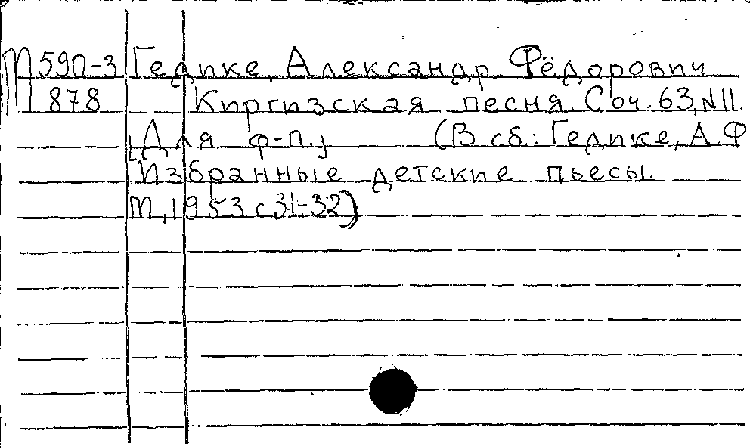 М590-3 Гедике, Александр Фёдорович
878 Киргизская песня. Соч. 63, №11.
[Для ф-п.] (В сб.: Гедике, А.Ф
Избранные детские пьесы.
М., 1953 с 31-32)